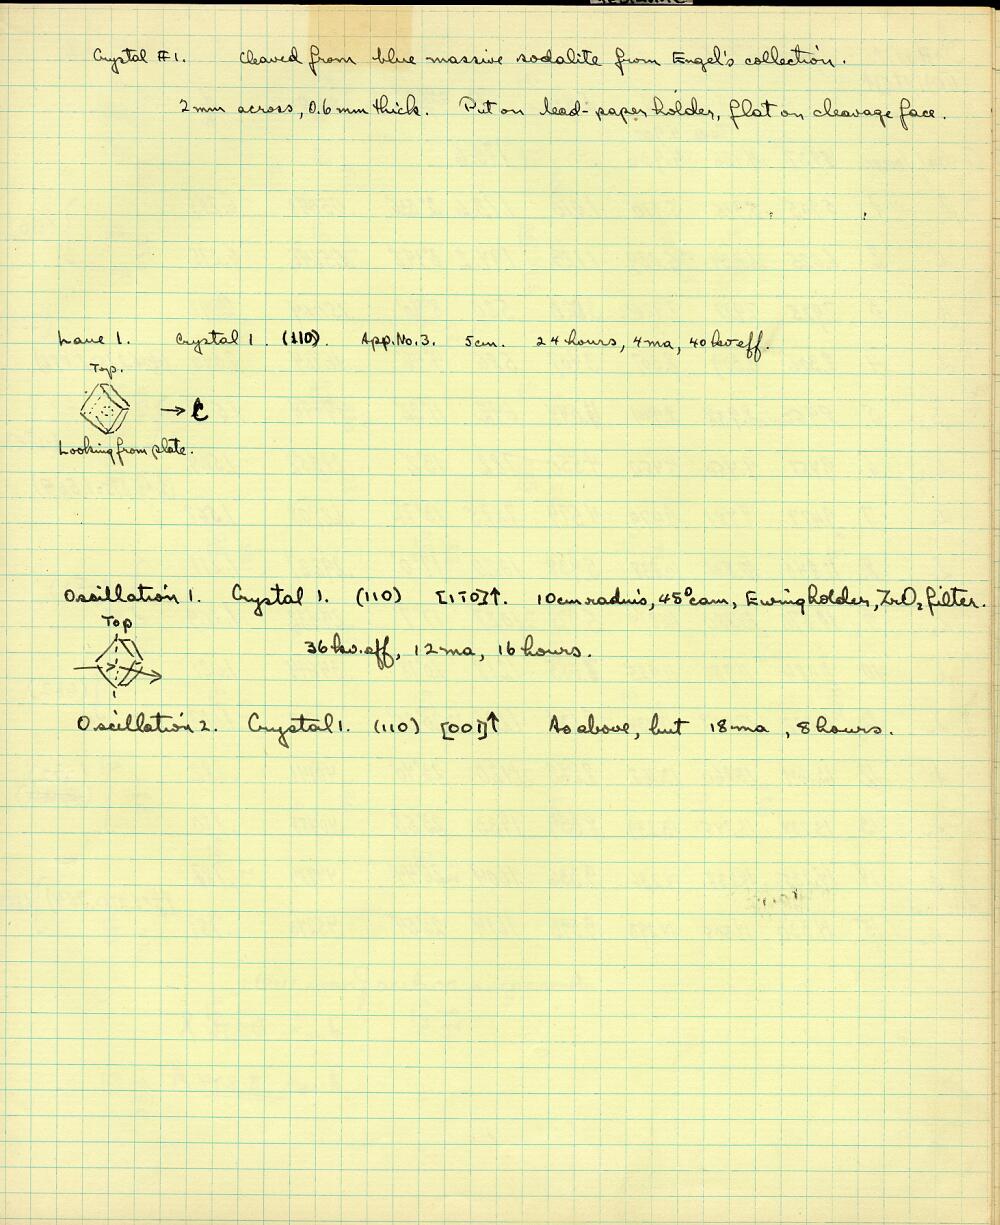 Crystal #1. Cleaved from blue massive sodalite from Engel's collection.
2 mm across, 0.6 mm thick. Put on lead-paper holder, flat on cleavage face.
Laue 1. Crystal 1. (110). App. No. 3. 5 cm. 24 hours, 4 ma, 40 kv eff.
Top.
→ C
Looking from plate.
Oscillation 1. Crystal 1. (110) [11̅0]↑. 10 cm radius, 45° cam, Ewing holder, ZrO₂ filter.
Top
36 kv. eff, 12 ma, 16 hours.
Oscillation 2. Crystal 1. (110) [001]↑ As above, but 18 ma, 8 hours.